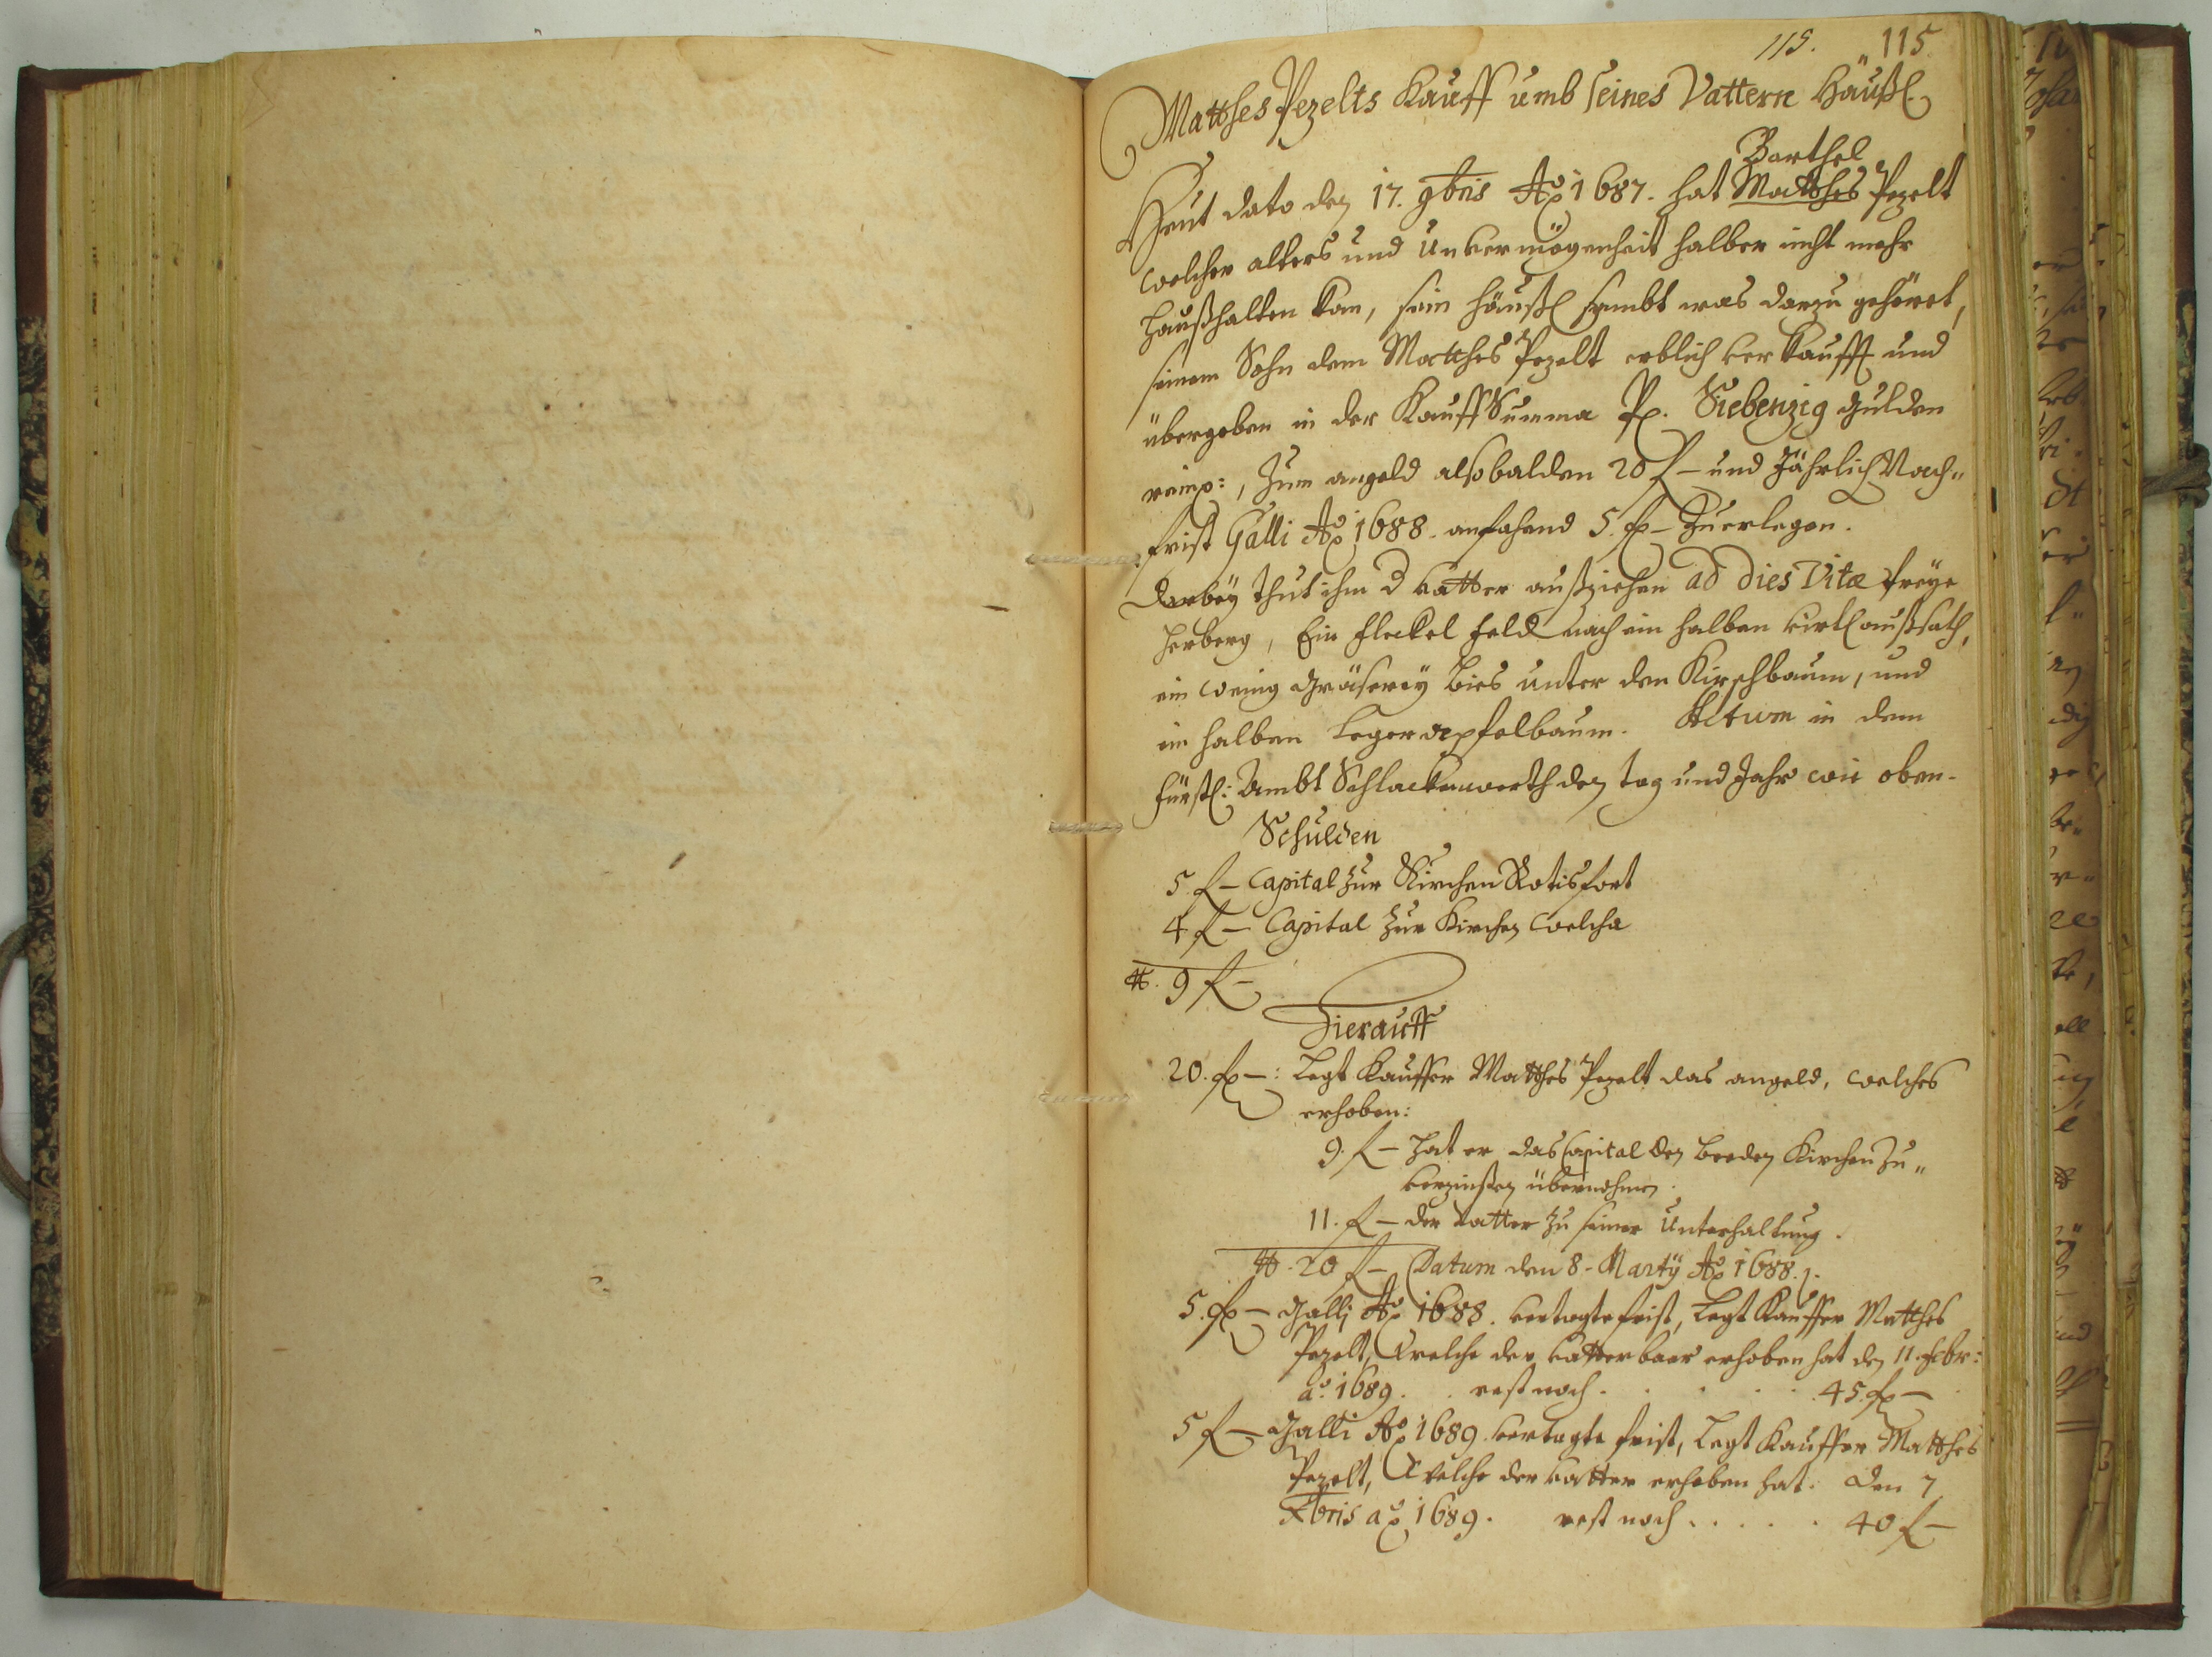 115. 115
Matthes Pezelts Kauff umb seines Vattern Häußl.
Barthel
Heut dato den 17. 9bris Ao 1687. hat Matthes Pezelt
welcher alters und Unvermögenheit halber nicht mehr
haußhalten kan, sein Häußl sambt was darzu gehöret,
seinem Sohn dem Matthes Pezelt erblich verkaufft und
übergeben in der Kauff Summa Pr. Siebenzig gulden
reinß:, Zum angeld alßobalden 20 f – und Jährlich Nach„
frist Galli Ao 1688. anfahend 5. fl – Zuerlegen.
Darbey thut ihm d Vatter außziehen ad dies Vitæ freye
herberg, Ein fleckel feld nach ein halben virtl außsath,
ein wenig Gräserey bies unter den Kirschbaum, und
ein halben Legerapfelbaum. Actum in dem
Fürstl: Ambt Schlackenwerth den tag und Jahr wie oben.
Schulden
5. f – Capital zur Kirchen Rotisfort
4 f – Capital zur Kirchen Welcha
tt. 9 f –
Hierauff
20. fl –: Legt Kauffer Matthes Pezelt das angeld, welches
erhoben:
9. f – hat er das Capital den beeden Kirchen Zu„
verzinßen übernohmen.
11. f – der Vatter zu seiner Unterhaltung.
tt. 20 f – Datum den 8. Martÿ Ao 1688.
5. fl – Galli Ao 1688. vertagte frist, Legt Kauffer Matthes
Pezelt, Welche der Vatter baar erhoben hat den 11. Febr:
ao. 1689. . rest noch . . . . 45. fl –
5 f – Galli Ao 1689. vertagte frist, Legt Kauffer Matthes
Pezelt, Welche der Vatter erhoben hat. den 7.
Xbris ao 1689. rest noch . . . . . 40 f –